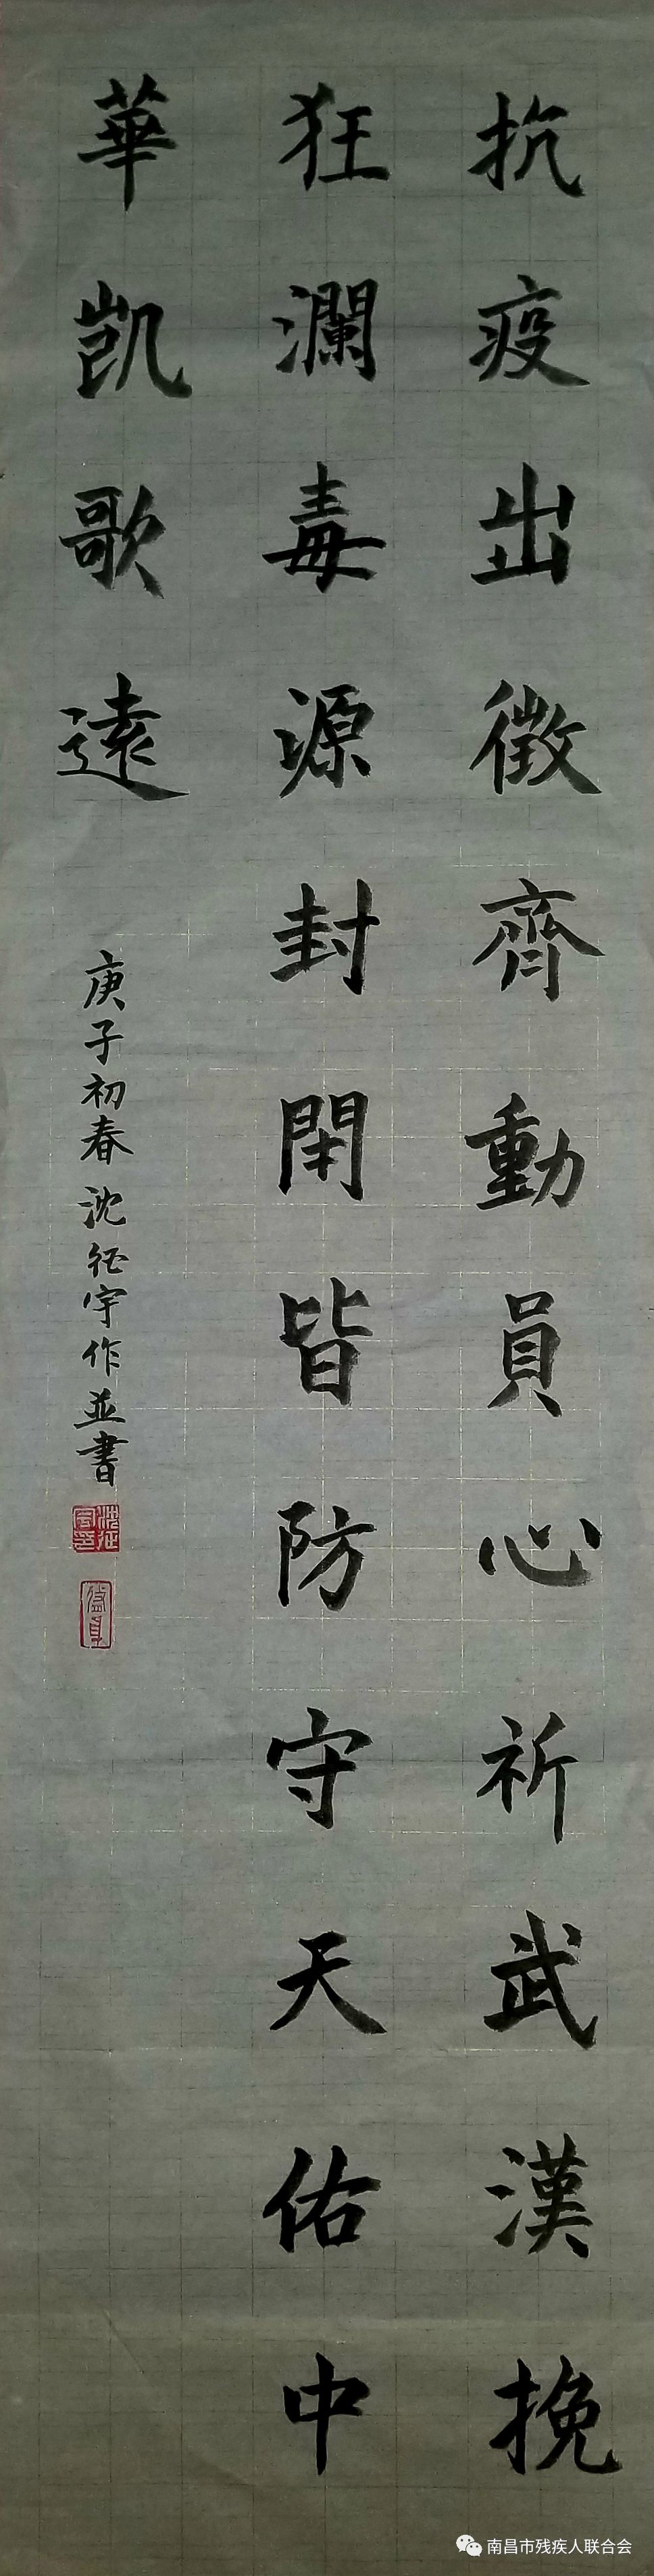 抗疫出徵齊動員心祈武漢挽
狂瀾毒源封閉皆防守天佑中
華凱歌遠
庚子初春沈征宇作並書
南昌市残疾人联合会